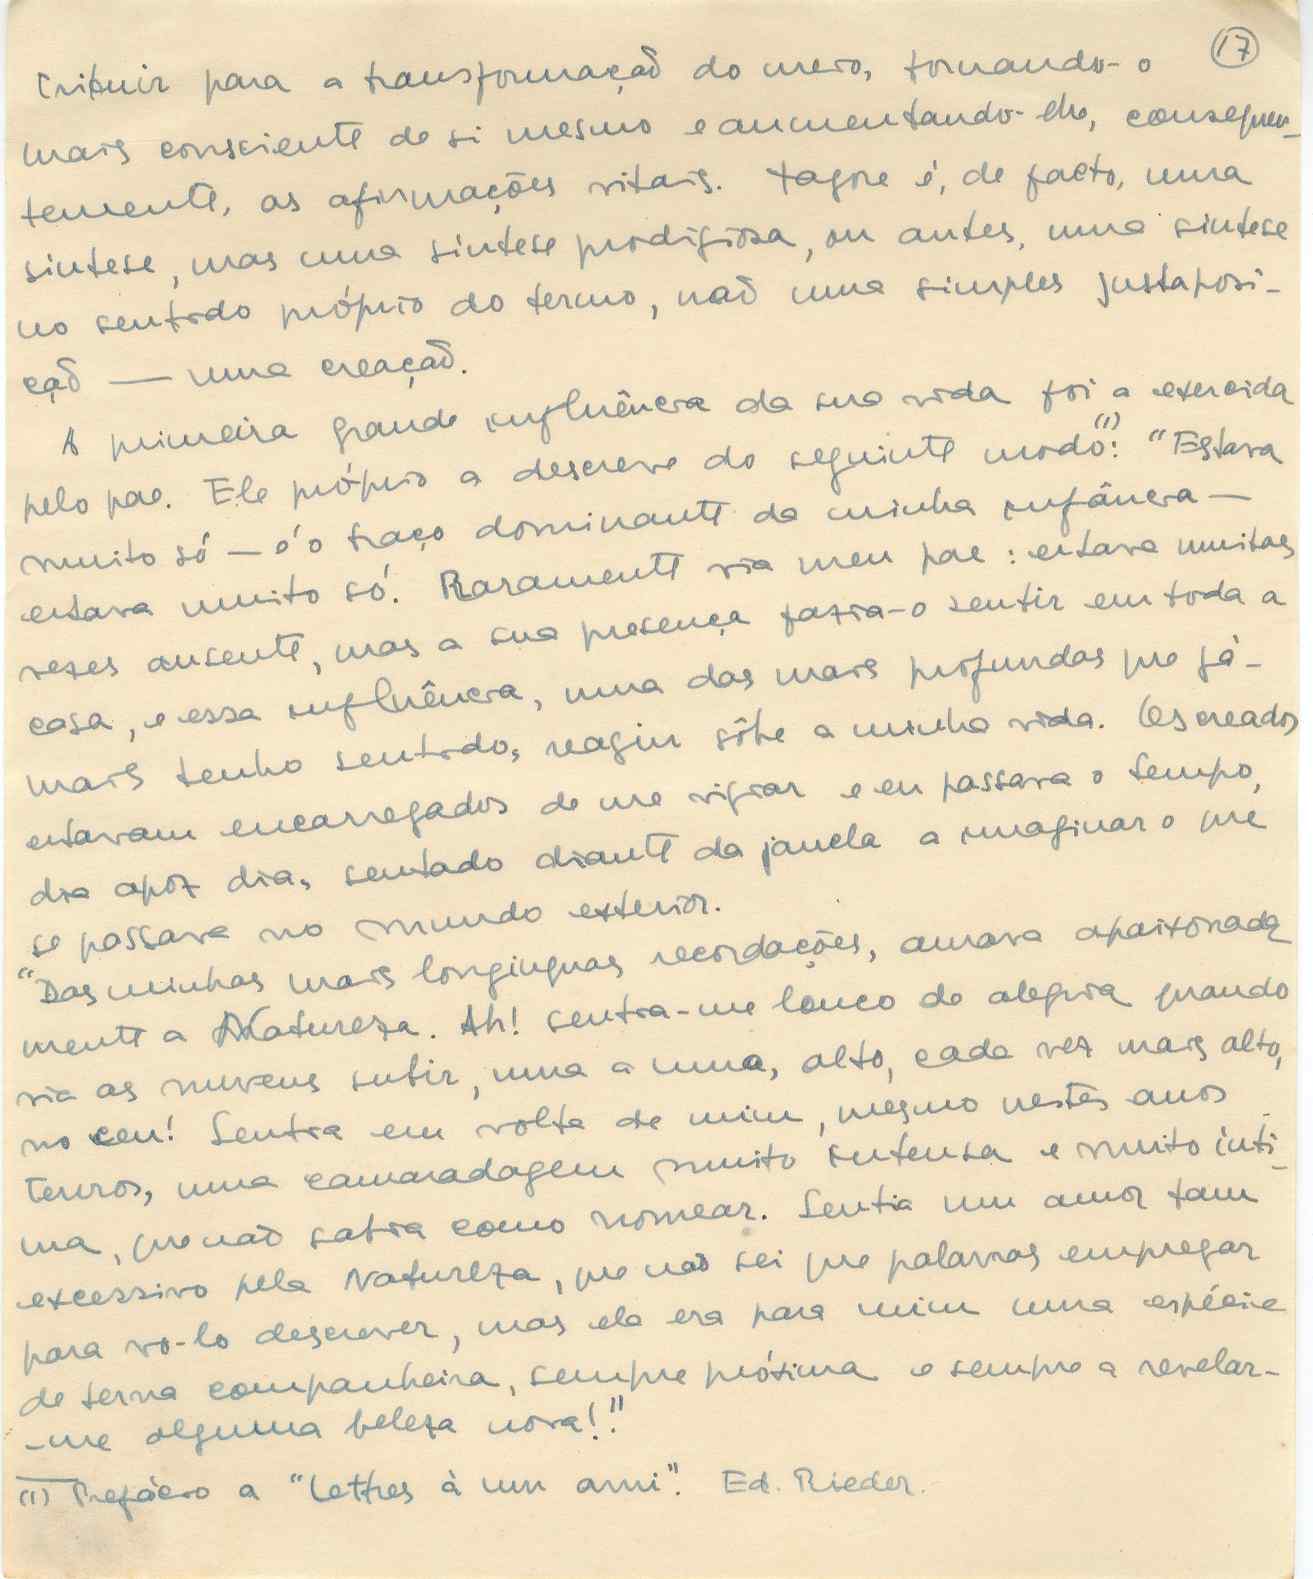 17
tribuir para a transformação do meio, tornando-o
mais consciente de si mesmo e aumentando-lhe, consequen-
temente, as afirmações vitais. Tagore é, de facto, uma
sintese, mas uma sintese prodigiosa, ou antes, uma sintese
no sentido próprio do termo, não uma simples justaposi-
ção — uma creação.
A primeira grande influência da sua vida foi a exercida
pelo pae. Ele próprio a descreve do seguinte modo (1): "Estava
muito só — é o traço dominante da minha infância —
estava muito só. Raramente via meu pae: estava muitas
vezes ausente, mas a sua presença fazia-o sentir em toda a
casa, e essa influência, uma das mais profundas que já-
mais tenho sentido, reagiu sôbe a minha vida. Os creados
estavam encarregados de me vigiar e eu passava o tempo,
dia apoz dia, sentado diante da janela a imaginar o que
se passava no mundo exterior.
"Das minhas mais longinquas recordações, amava apaixonada
mente a Natureza. Ah! sentia-me louco de alegria quando
via as nuvens subir, uma a uma, alto, cada vez mais alto,
no ceu! Sentia em volta de mim, mesmo nestes anos
tenros, uma camaradagem muito intensa e muito inti-
ma, que não sabia como nomear. Sentia um amor tam
excessivo pela Natureza, que não sei que palavras empregar
para vo-lo descrever, mas ela era para mim uma espécie
de terna companheira, sempre próxima e sempre a revelar-
-me alguma beleza nova!"
(1) Prefácio a "Lettres à un ami". Ed. Rieder.